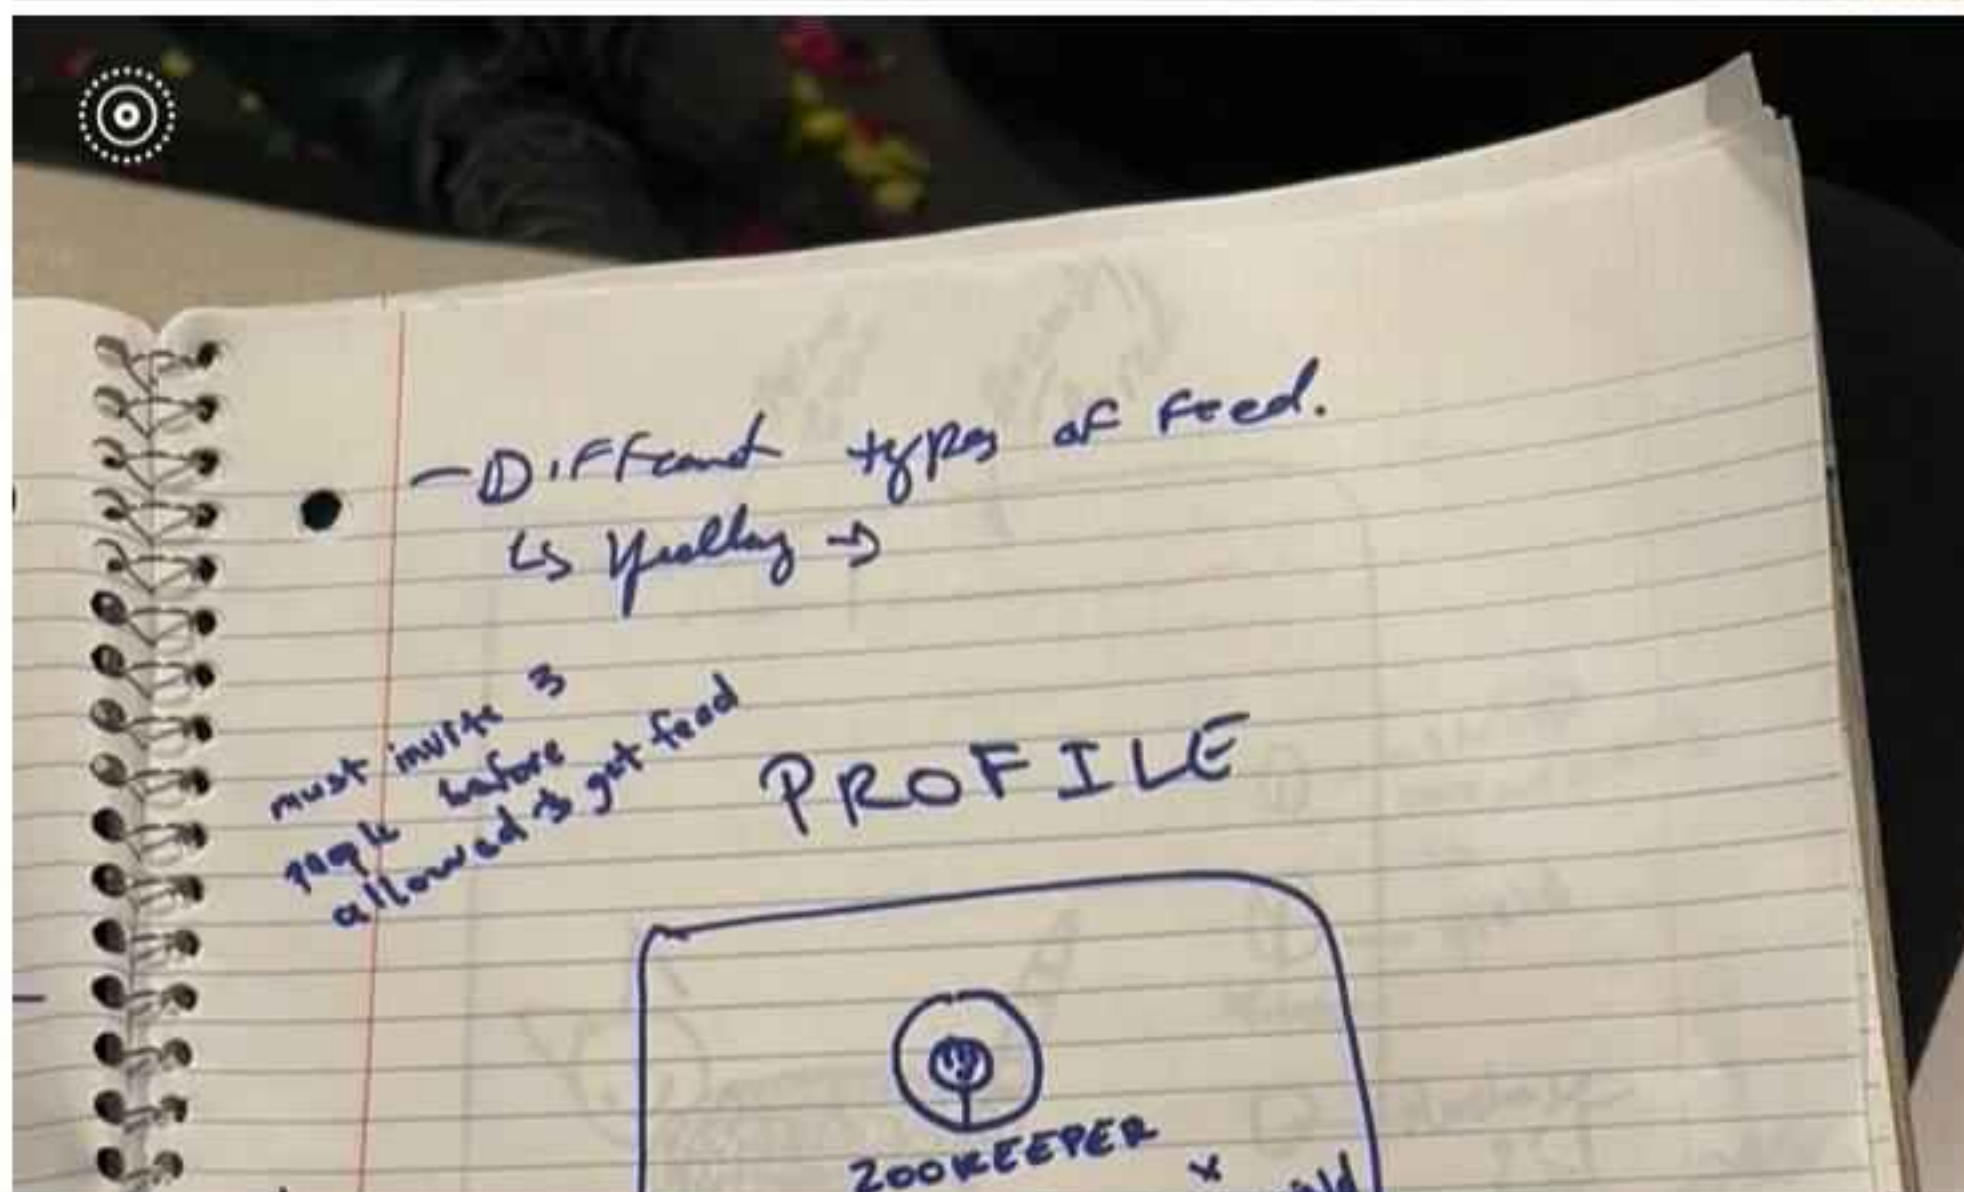 - Different types of feed.
↳ →
must invite 3
people before
allowed to get feed
PROFILE
ZOOKEEPER
x